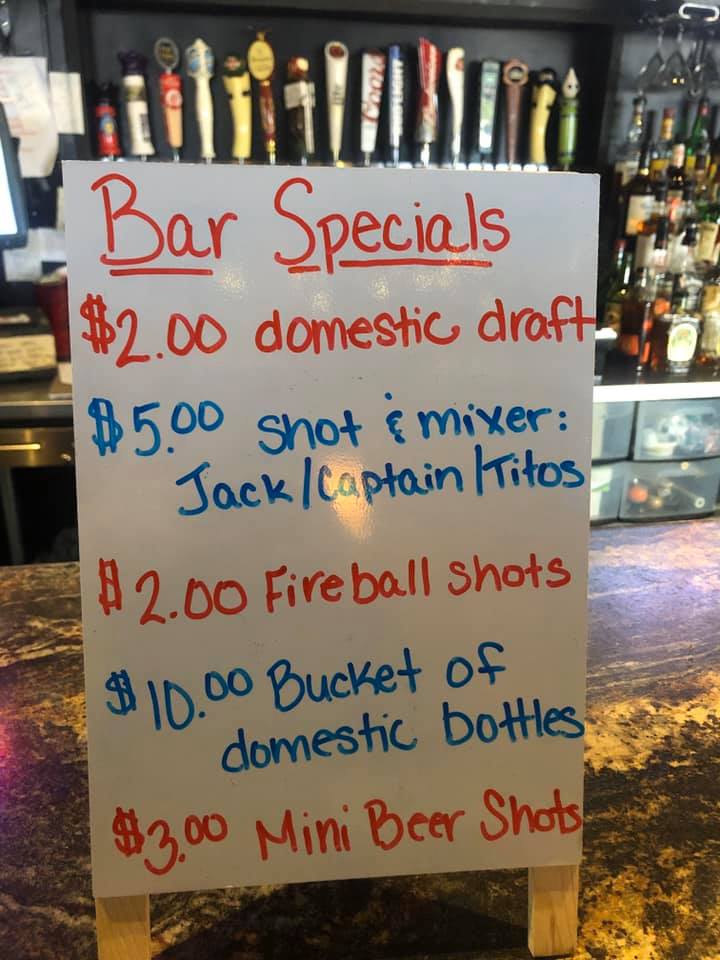 Coors
Bar Specials
$2.00 domestic draft
$5.00 shot & mixer:
Jack/Captain/Titos
$2.00 Fireball shots
$10.00 Bucket of
domestic bottles
$3.00 Mini Beer Shots